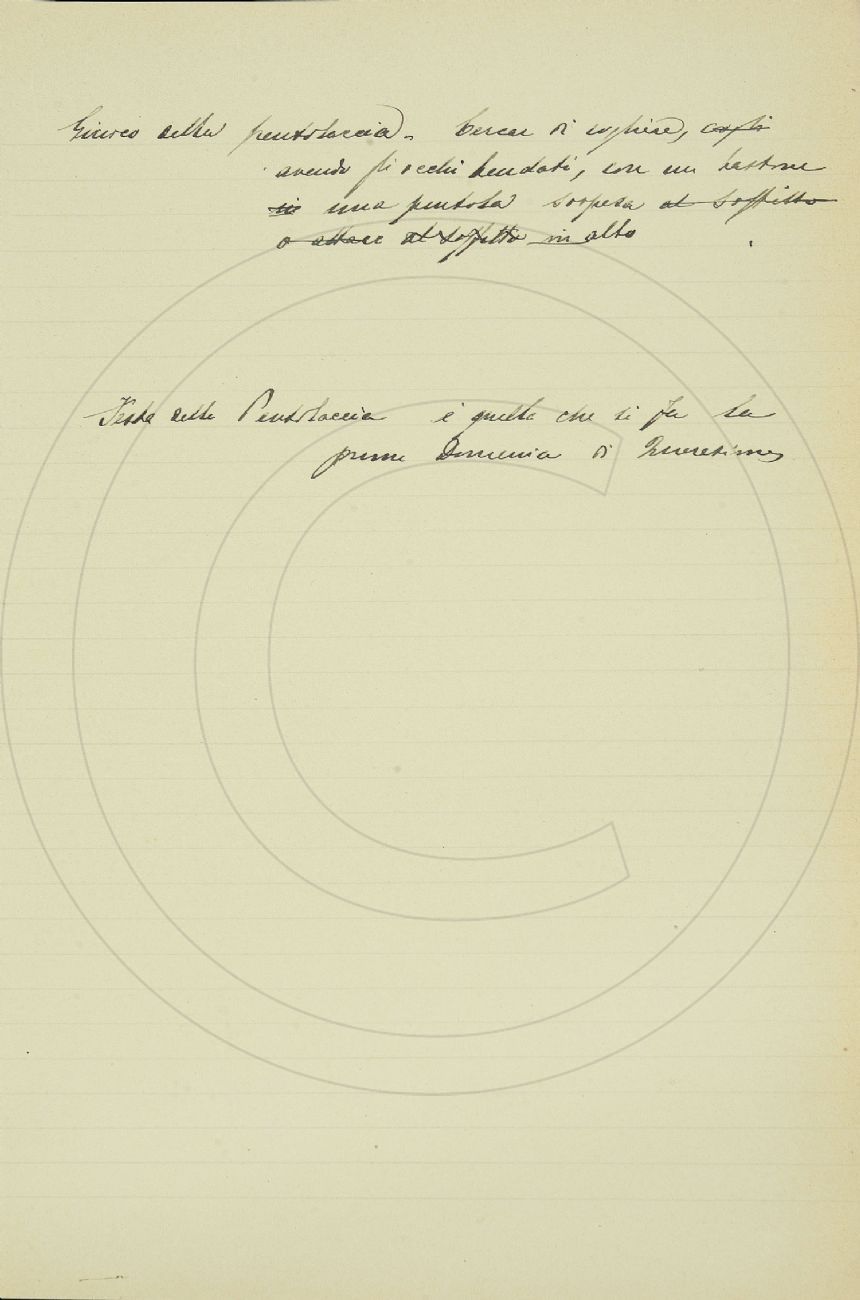 Giuoco della pentolaccia. Cercar di cogliere, cogli
avendo gli occhi bendati, con un bastone
in una pentola sospesa al soffitto
o attacc al soffitto in alto
Festa della Pentolaccia è quella che si fa la
prima Domenica di Quaresima